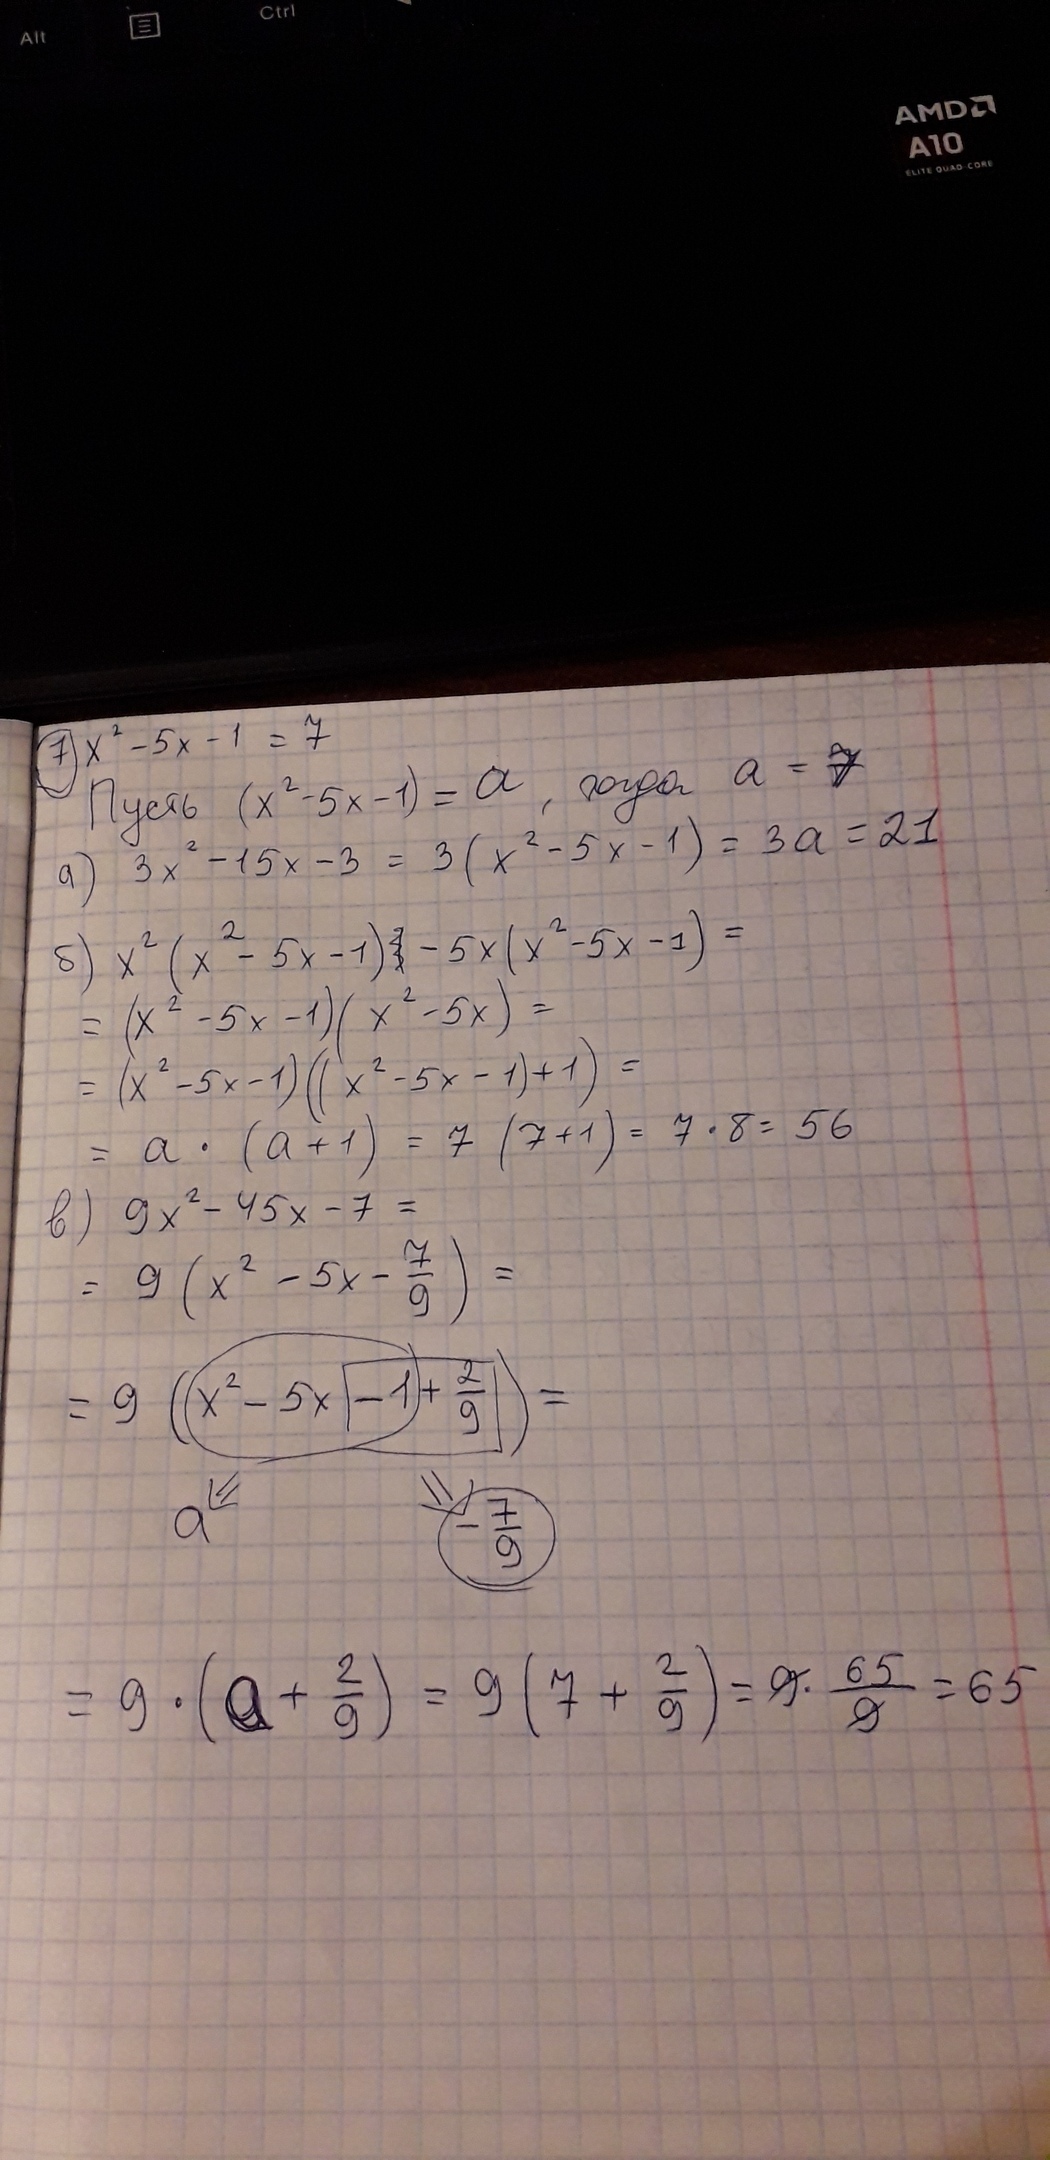 Alt
Ctrl
AMD
A10
ELITE QUAD-CORE
7) x² - 5x - 1 = 7
Пусть (x² - 5x - 1) = a, тогда a = 7
а) 3x² - 15x - 3 = 3(x² - 5x - 1) = 3a = 21
б) x²(x² - 5x - 1) - 5x(x² - 5x - 1) =
= (x² - 5x - 1)(x² - 5x) =
= (x² - 5x - 1)((x² - 5x - 1) + 1) =
= a · (a + 1) = 7 (7 + 1) = 7 · 8 = 56
в) 9x² - 45x - 7 =
= 9 (x² - 5x - 7/9) =
= 9 ((x² - 5x - 1) + 2/9) =
a - 7/9
= 9 · (a + 2/9) = 9 (7 + 2/9) = 9 · 65/9 = 65